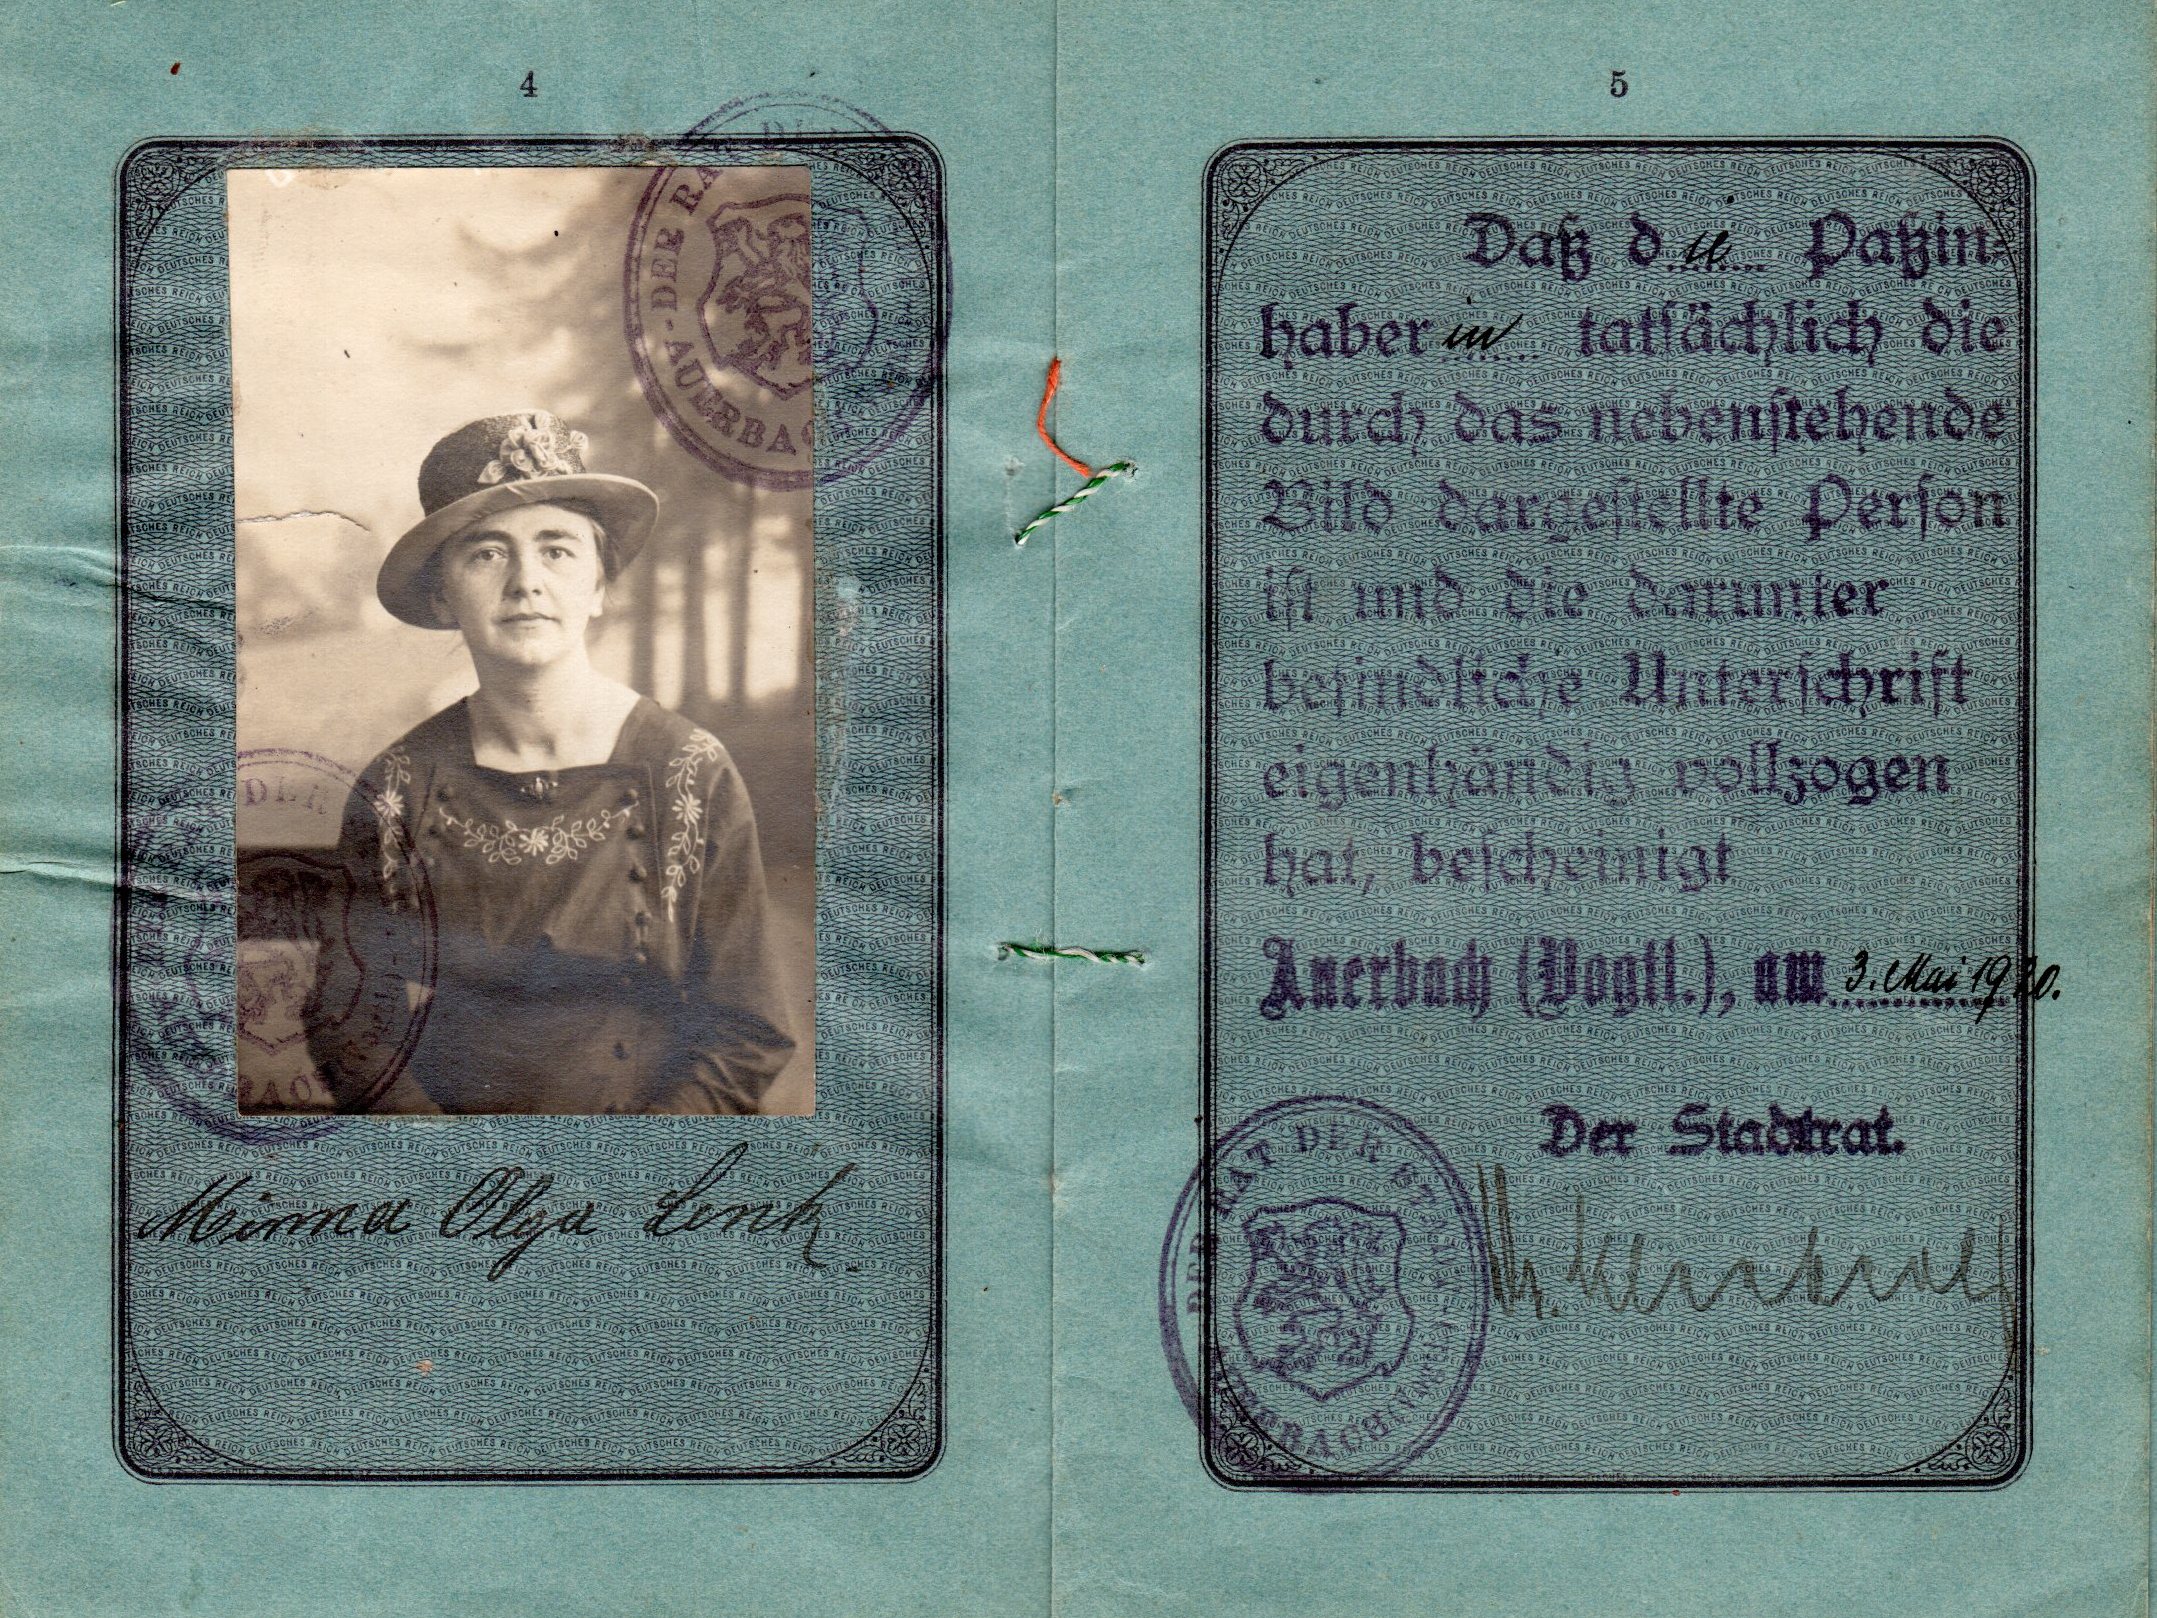 4
DER RA
AUERBACH
DER
Minna Olga Lenk.
5
Daß die Paßin-
haberin tatsächlich die
durch das nebenstehende
Bild dargestellte Person
ist und die darunter
befindliche Unterschrift
eigenhändig vollzogen
hat, bescheinigt
Auerbach (Vogtl.), am 3. Mai 1920.
Der Stadtrat.
DER RAT DER STADT
AUERBACH (VOGTL)
DEUTSCHES REICH